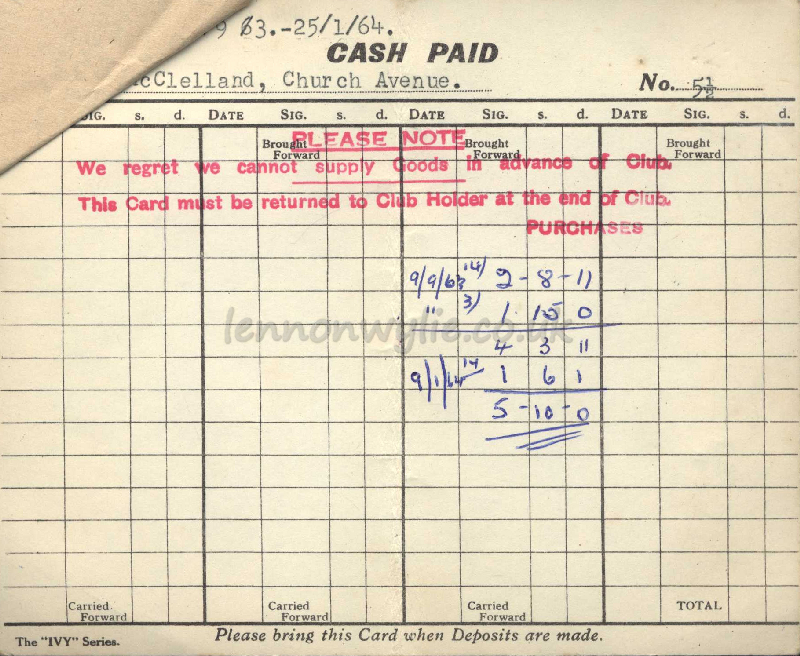 9 63.-25/1/64.
CASH PAID
McClelland, Church Avenue.
No. 5½
SIG. s. d. DATE SIG. s. d. DATE SIG. s. d. DATE SIG. s. d.
Brought Forward Brought Forward Brought Forward
PLEASE NOTE
We regret we cannot supply Goods in advance of Club.
This Card must be returned to Club Holder at the end of Club.
PURCHASES
9/9/63 14) 2-8-11
" 3) 1 15 0
lennonwylie.co.uk
4 3 11
9/1/64 14 1 6 1
5-10-0
Carried Forward Carried Forward Carried Forward TOTAL
The "IVY" Series.
Please bring this Card when Deposits are made.